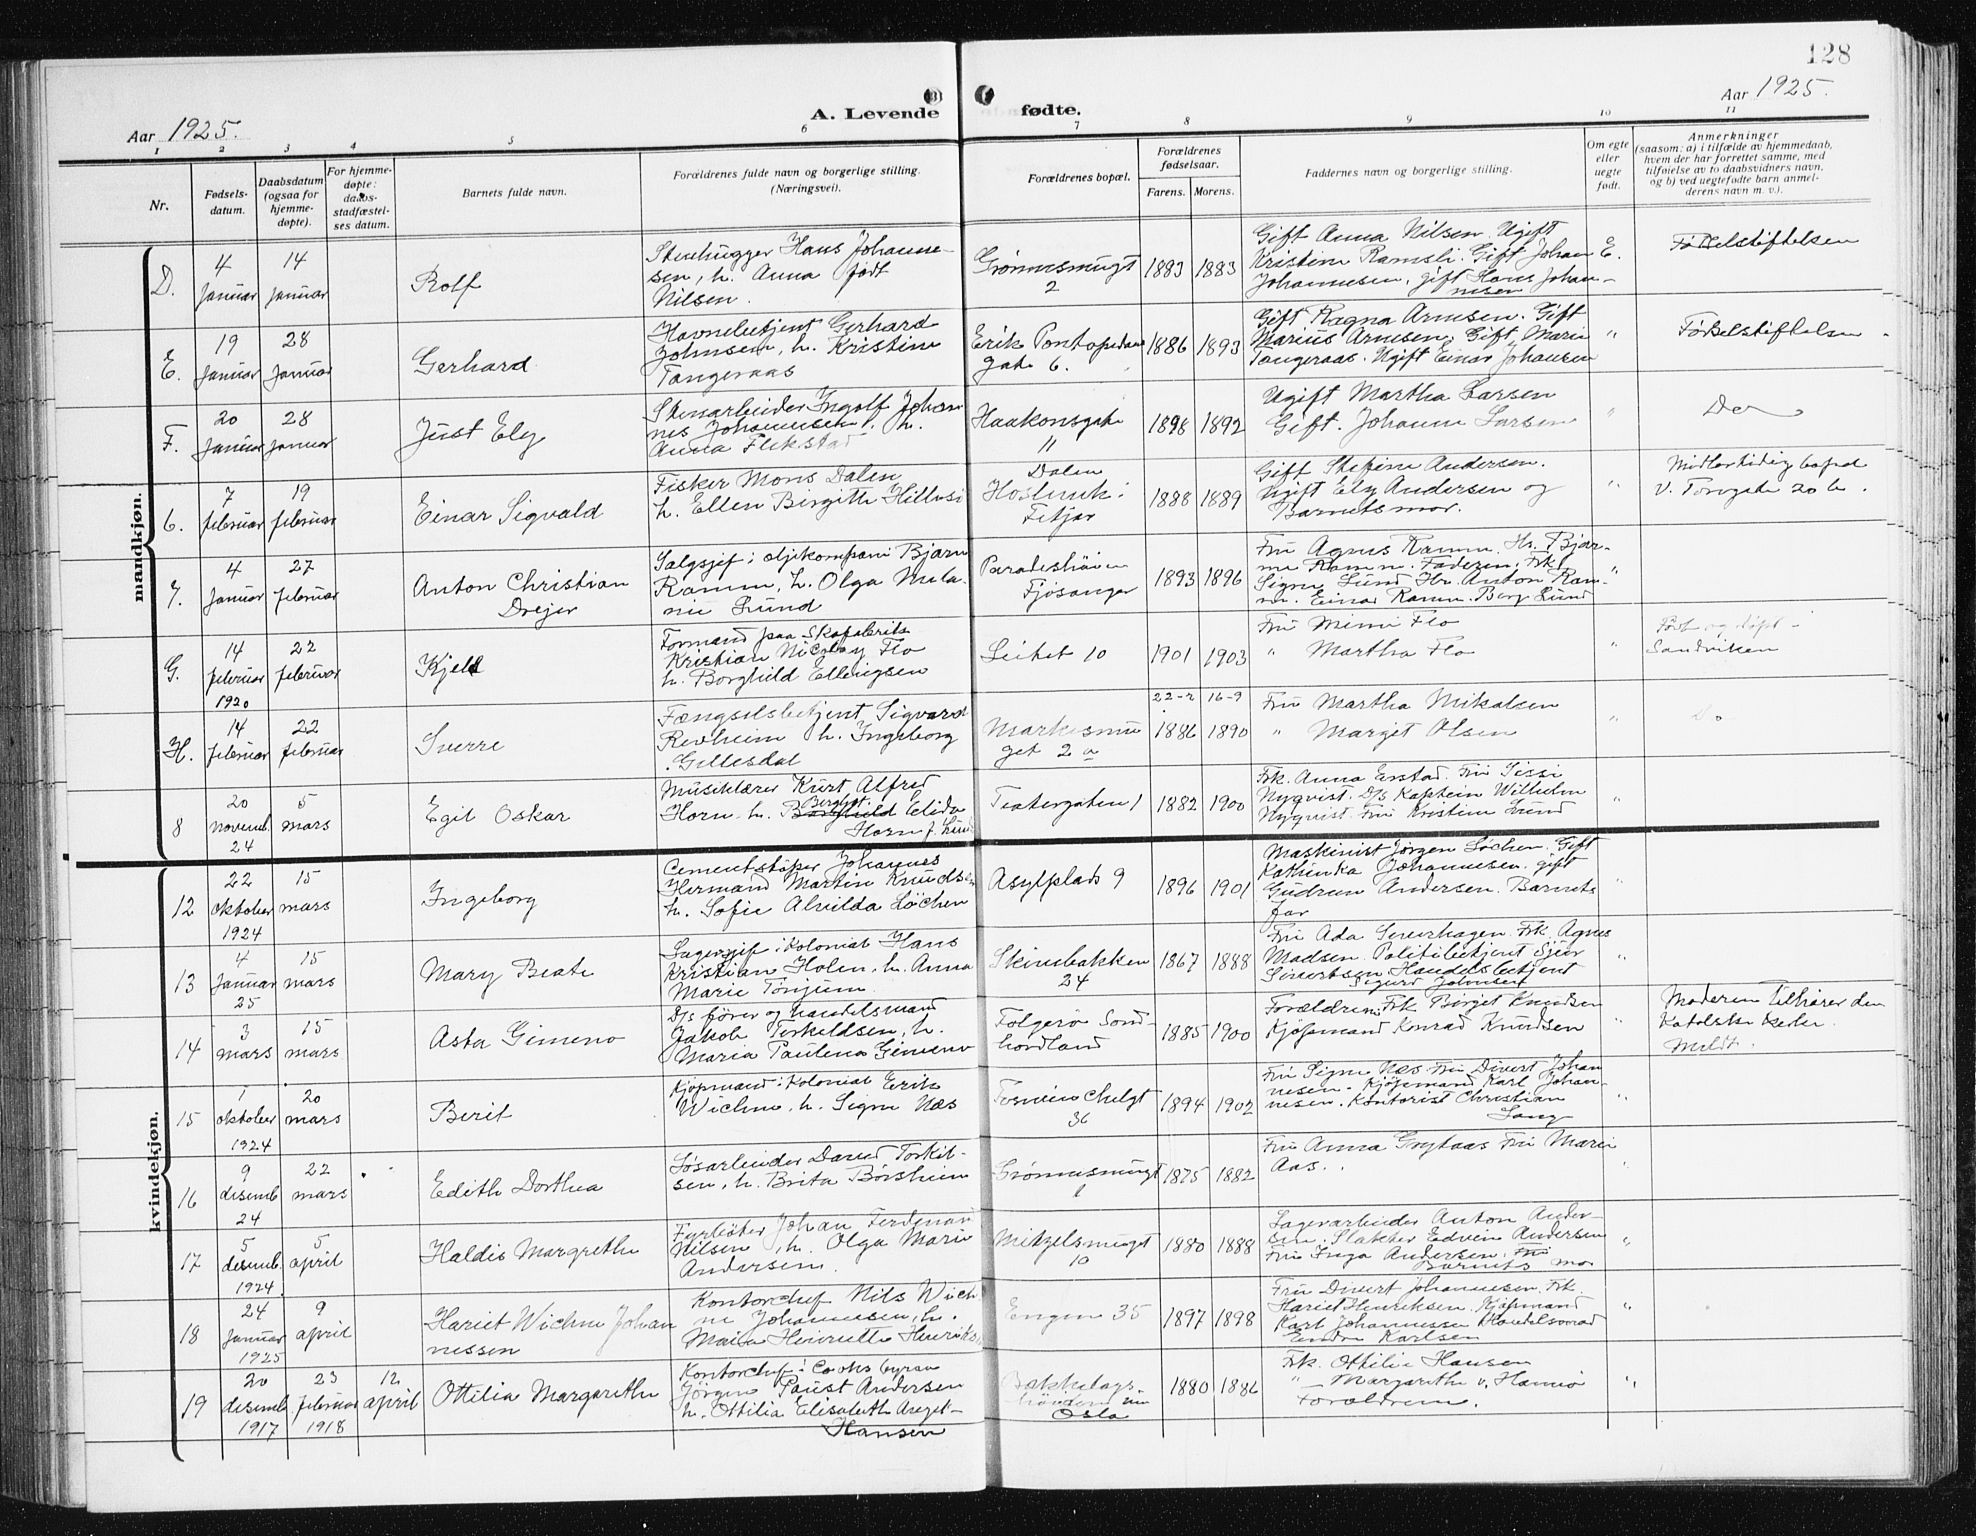 128
Aar 1925.
A. Levende
fødte.
Aar 1925.
1 2 3 4 5 6 7 8 9 10 11
Nr.
Fødsels-
datum.
Daabsdatum
(ogsaa for
hjemme-
døpte).
For hjemme-
døpte:
daabs-
stadfæstel-
ses datum.
Barnets fulde navn.
Forældrenes fulde navn og borgerlige stilling.
(Næringsvei).
Forældrenes bopæl.
Forældrenes
fødselsaar.
Farens. Morens.
Faddernes navn og borgerlige stilling.
Om egte
eller
uegte
født.
Anmerkninger
(saasom: a) i tilfælde av hjemmedaab,
hvem der har forrettet samme, med
tilføielse av to daabsvidners navn,
og b) ved uegtefødte barn anmel-
derens navn m. v.).
mandkjøn.
D.
4
januar
14
januar
Rolf
Stenhugger Hans Johanne-
sen, h. Anna født
Nilsen.
Grønnesmugt
2
1883 1883
Gift Anna Nilsen. Ugift
Kristine Ramsli. Gift Johan
Johannesen, gift Hans Johan-
nesen
E.
Fødselstiftelsen
E.
19
januar
28
januar
Gerhard
Havnebetjent Gerhard
Johnsen, h. Kristine
Tangeraas
Erik Pontopidan
gate 6.
1886 1893
Gift Ragna Arnesen. Gift
Marius Arnesen, Gift Marie
Tangeraas. Ugift Einar Johansen
"
Fødselstiftelsen
F.
20
januar
28
januar
Just Ely
Stenarbeider Ingolf Johan
nes Johannesen, h.
Anna Flekstad
Haakonsgate
11
1898 1892
Ugift Martha Larsen
Gift. Johanne Larsen
"
Do
6.
7
februar
19
februar
Einar Sigvald
Fisker Mons Dalen
h. Ellen Birgitte Hillesi
Dalen
Fitjar
1888 1889
Gift Stefine Andersen.
Ugift Ely Andersen og
Barnets mor.
"
Midlertidig bopæl
V. Torvgate 20 b.
7.
4
januar
27
februar
Anton Christian
Drejer
Salgsjef i oljekompani Bjarne
Ramm, h. Olga Mela-
nie Lund
Paradishöien
Fjøsanger
1893 1896
Fru Agnes Ramm. Hr. Bjar-
ne Ramm. Faderen, Frk.
Signe Lund Hr. Anton Ram-
m. Einar Ramm. Borg Lund
"
G.
14
februar
1920
22
februar
Kjell
Formand paa Skofabrik
Kristian Nicolay Flo
h. Borghild Ellingsen
Leitet 10
1901 1903
Fru Mimi Flo
" Martha Flo
"
Født og døpt
Sandviken
H.
14
februar
22
februar
Sverre
Fængselsbetjent Sigvard
Revheim h. Ingeborg
Gillesdal
Markesmu
get 2 a
22-2 16-9
1886 1890
Fru Martha Mikalsen
" Marget Olsen
"
Do
8
20
novemb.
24
5
mars
Egil Oskar
Musiklærer Kurt Alfred
Horn. h. Borghild Elida
Horn f. Lund
Teatergaten 1
1882 1900
Frk. Anna Erstad. Fru Sissi
Nyqvist. D/s Kaptein Wilhelm
Nyqvist. Fru Kristine Lund
"
kvindekjøn.
12
22
oktober
1924
15
mars
Ingeborg
Cementstøper Johannes
Hermand Martin Knudsen
h. Sofie Alvilda Løchen
Asylplads 9
1896 1901
Maskinist Jørgen Løchen. Gift
Kathinka Johannesen. gift
Gudrun Andersen. Barnets
far
"
13
4
januar
25
15
mars
Mary Beate
Lagersjef i Kolonial Hans
Kristian Holen, h. Anna
Marie Tönjum
Skivebakken
24
1867 1888
Fru Ada Severhagen. Frk. Agnes
Madsen. Politibetjent Sjur
Sivertsen Handelsbetjent
Sigurd Johnsen
"
14
3
mars
15
mars
Asta Gimeno
D/s fører og handelsmand
Jakob Terkildsen, h.
Maria Paulena Gimeno
Folgerö Sönd-
hordland
1885 1900
Forældrene, Frk. Birget Knudsen
Kjøpmand Konrad Knudsen
"
Moderen tilhører den
Katolske Kerke.
Meldt.
15
1
oktober
1924
20
mars
Berit
Kjøpmand i Kolonial Erik
Wichne, h. Signe Næs
36
1894 1902
Fru Signe Næs. Fru Divert Johan
nesen. Kjøpmand Karl Johan-
nesen. Kontorist Christian
Lang
"
16
9
desemb
24
22
mars
Edith Dorthea
Løsarbeider David Torkil-
sen, h. Brita Børsheim
Grönnesmugt
6
1875 1882
Fru Anna Grytaas Fru Marie
Aas.
"
17
5
desemb.
1924.
5
april
Haldis Margrethe
Fyrbøter Johan Ferdenan
Nilsen, h. Olga Marie
Andersen.
Mitzelsmugt
10
1880 1888
Lagerarbeider Anton Ander-
sen. Slakter Edvin Andersen
Fru Inga Andersen. Fru
Barnets mo
"
18
24
januar
1925
9
april
Hariet Wichne Johan
nessen
Kontorchef Nils Wich
ne Johannesen, h.
Maria Henriette Henriks
Engen 35
1897 1898
Fru Divert Johannesen. Frk.
Hariet Henriksen. Kjøpmand
Karl Johannessen Handelsmand
Endre Karlsen
"
19
20
desemb.
1917
23
februar
1918
12
april
Ottilia Margarethe
Kontorchef i Cooks byraa
Jörgen Paust Andersen
h. Ottilia Elisabeth Areget-
Hansen
Bakkelags-
Oslo
1880 1886
Frk. Ottilie Hansen
" Margarethe v. Hanno
Forældrene.
"